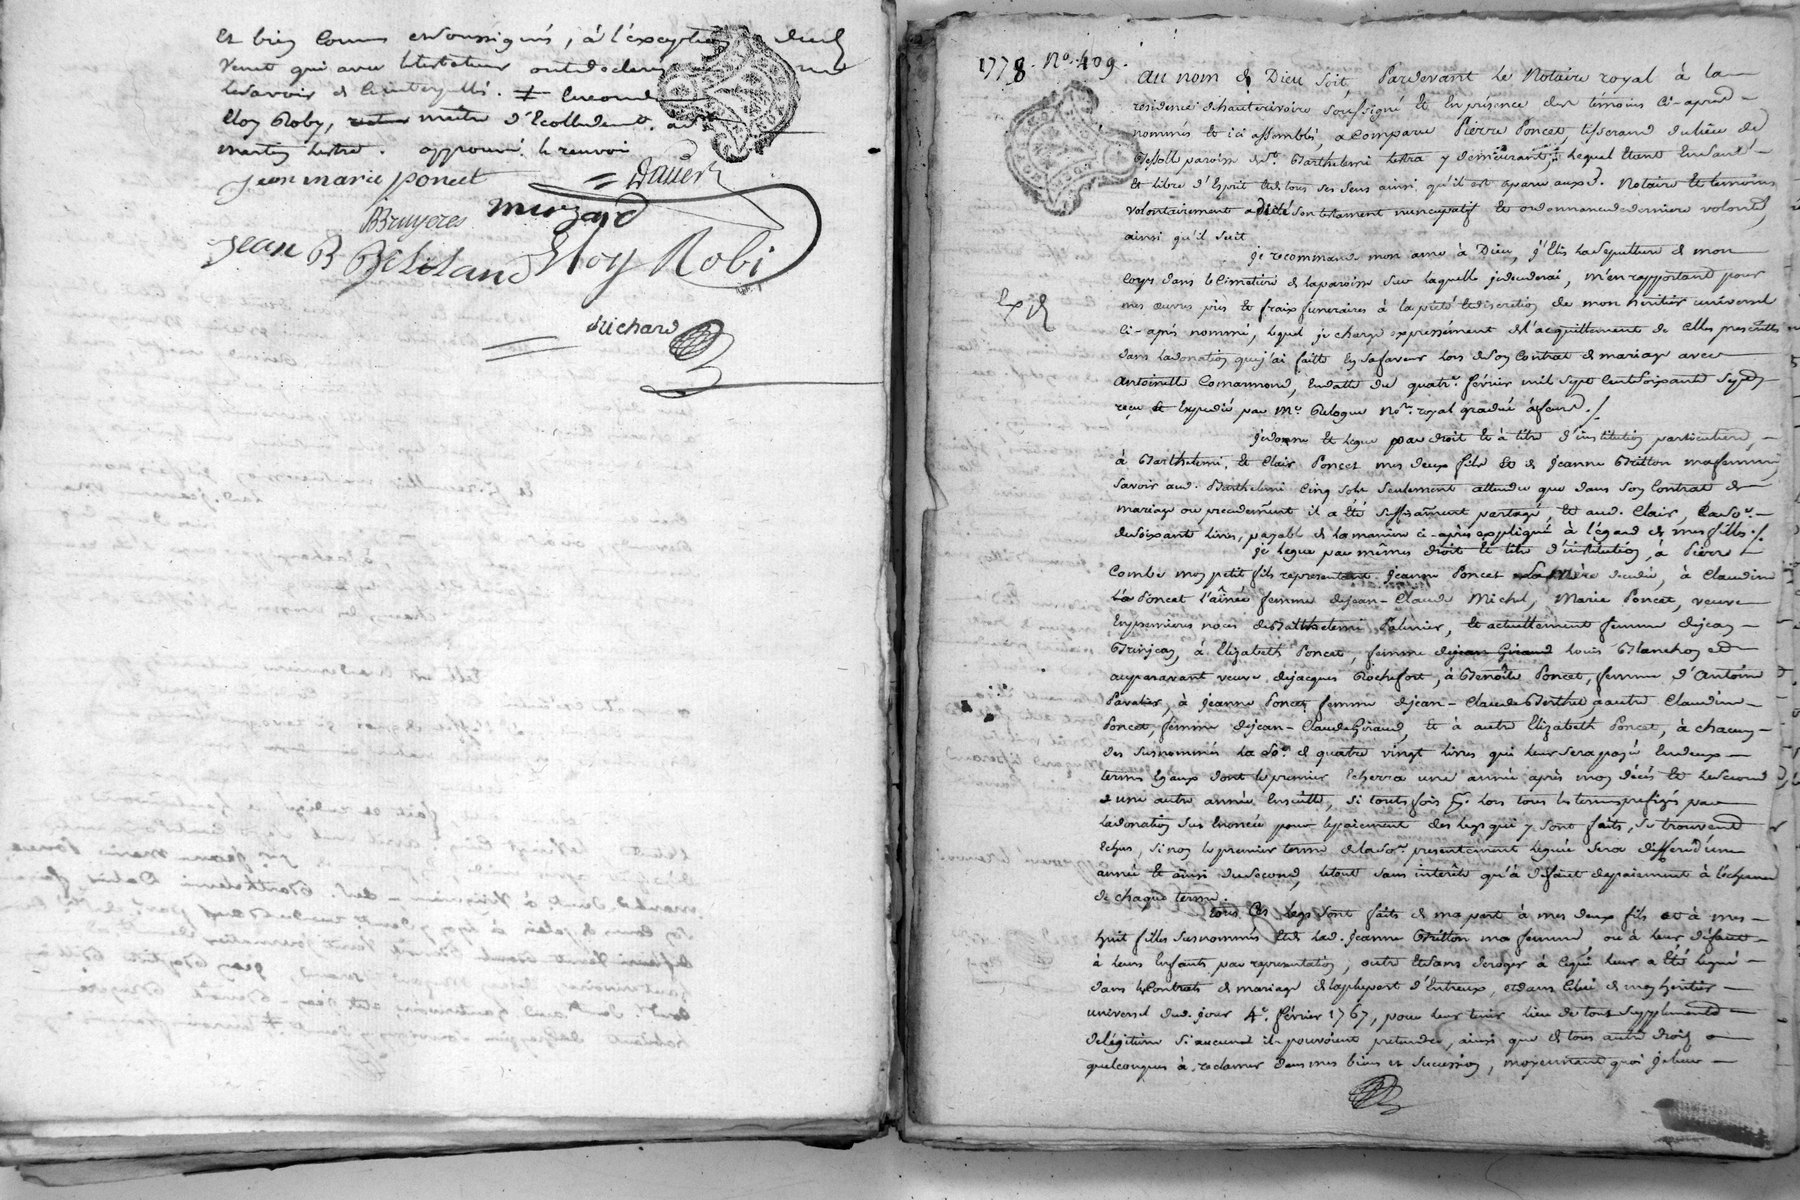 et bien connus er soussignés, à l'exception dud.
Venet qui avec le testateur ont declaré ne
le savoir de ce interpellé. ≠ Surcond
Eloy Roby, maître d'Ecolle
martin lestra. approuvé le renvoi
jean marie poncet Daverd
Bruyeres murzard
jean B Eloy Robi
Richard
1778. No. 409.
Au nom de Dieu soit, Pardevant le Notaire royal à la
residence d'hauterivoire soussigné et en présence des témoins ci-après
nommés et ici assemblés, a comparu Pierre Poncet, tisserand du lieu de
paroisse de St. Barthelemi lestra y demeurant, lequel étant en santé
et libre d'Esprit et de tous ses sens ainsi qu'il est aparu auxd. Notaire et temoins
volontairement a dicté son testament nuncupatif et ordonnance de derniere volonté
ainsi qu'il suit
je recommande mon ame à Dieu, j'Elis la sepulture de mon
corps dans le Cimetiere de la paroisse sur laquelle je decederai, m'en rapportant pour
mes œuvres pies et fraix funeraires à la pieté et discretion de mon heritier universel
ci-après nommé, lequel je charge expressément de l'acquittement de celles prescrittes
dans la donation que j'ai faitte en sa faveur lors de son Contrat de mariage avec
Antoinette Comarmond, en datte du quatre. février mil sept cent soixante sept
reçu et Expedié par Me. Pelogue No.re royal gradué à feurs ./
je donne et legue par droit et à titre d'institution particuliere,
à Barthelemi, et Clair Poncet mes deux fils et de jeanne Britton ma femme,
savoir aud. Barthelemi cinq sols seulement attendu que dans son Contrat de
mariage ou precedemment il a été suffisament partagé, et aud. Clair, la so.e
de soixante livres, payable de la maniere ci-après expliqué à l'égard de mes filles ./
je legue par mêmes droit et titre d'institution, à Pierre
Combe mon petit fils representant jeanne Poncet sa Mère decedée, à Claudine
Poncet l'aînée femme de jean-Claude Michel, Marie Poncet, veuve
en premieres noces de Barthelemi Palmier, et actuellement femme de jean
Brinjean, à Elizabeth Poncet, femme de jean Giraud Louis Blanchon et
auparavant veuve de jacques Rochefort, à Benoîte Poncet, femme d'Antoine
Pavalier, à jeanne Poncet femme de jean-Claude Berthet à autre Claudine
Poncet, femme de jean-Claude Giraud, et à autre Elizabeth Poncet, à chacun
des susnommés la so.e de quatre vingt livres qui leur sera payé en deux
termes égaux dont le premier echerra une année après mon décès et le second
une autre année ensuitte, si touts fois pr. lors tous les termes prefigés par
la donation sus enoncée pour le paiement des legs qui y sont faits, se trouvent
echus, si non le premier terme de la so.e presentement leguée sera differé d'une
année et ainsi du second, le tout sans interêt qu'à défaut de paiement à l'échance
de chaque terme.
Tous ces legs sont faits de ma part à mes deux fils et à mes
huit filles susnommés et de lad. jeanne Britton ma femme, ou à leur défaut
à leurs Enfants par representation, outre et sans deroger à ce qui leur a été legué
dans les Contrats de mariage de la plupart d'Entreux, et dans celui de mon heritier
universel dud. jour 4e. février 1767, pour leur tenir lieu de tout supplement
de légitime si aucuns ils pouvoient pretendre, ainsi que de tous autre droits
quelconques à reclamer dans mes biens et succession, moyennant quoi je leur